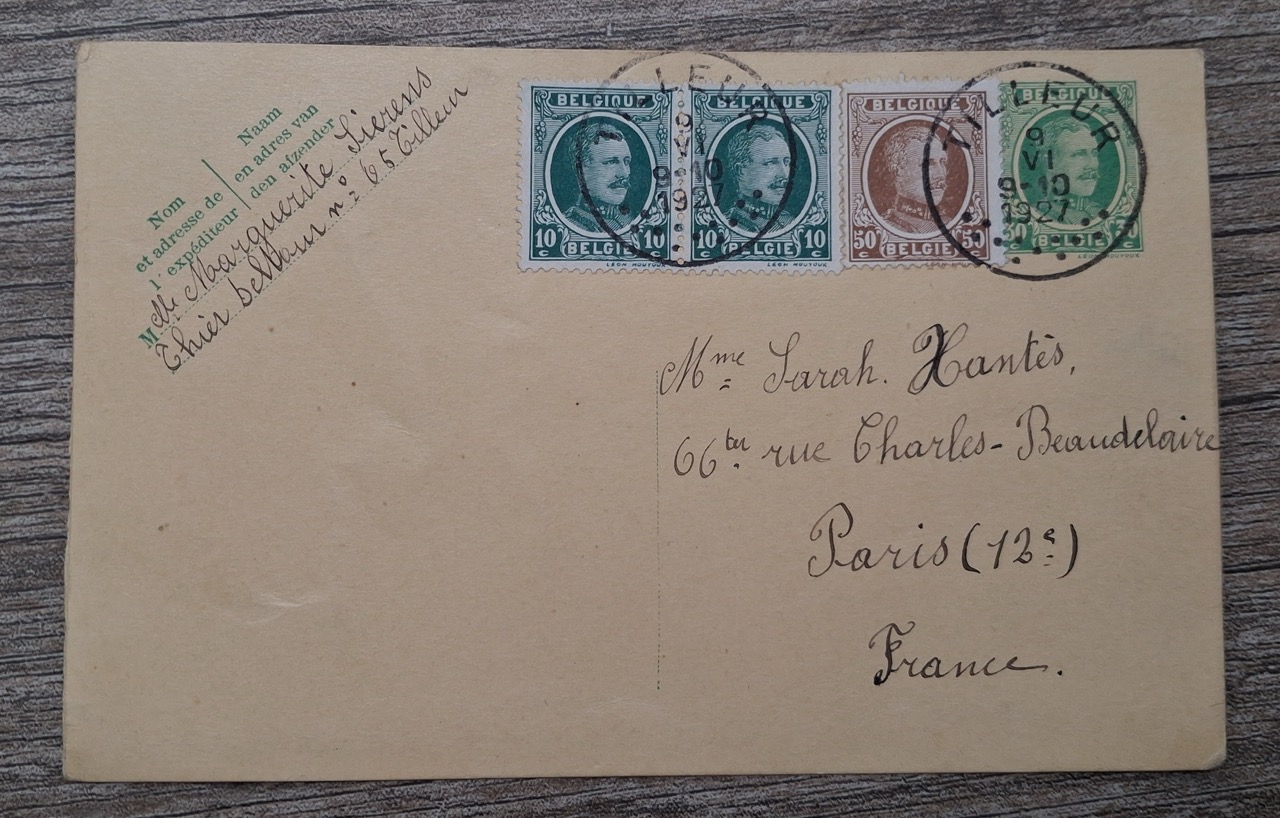 Nom
et adresse de
l'expéditeur
Naam
en adres van
den afzender
M
elle Marguerite Sierens
Thier Delhaur n° 65 Tilleur
BELGIQUE
10 c BELGIË 10 c
LÉON HOUYOUX
BELGIQUE
10 c BELGIË 10 c
LÉON HOUYOUX
BELGIQUE
50 c BELGIË 50 c
BELGIQUE
30 c BELGIË 30 c
LÉON HOUYOUX
TILLEUR
9
VI
9-10
1927
TILLEUR
9
VI
9-10
1927
Mme Sarah. Hantès,
66 ter rue Charles-Beaudelaire
Paris (12e)
France.